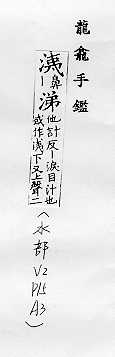 龍龕手鑑
洟鼻丨涕他計反丨淚目汁也
或作洟下又上聲二
(水部 V2
P15
A3)